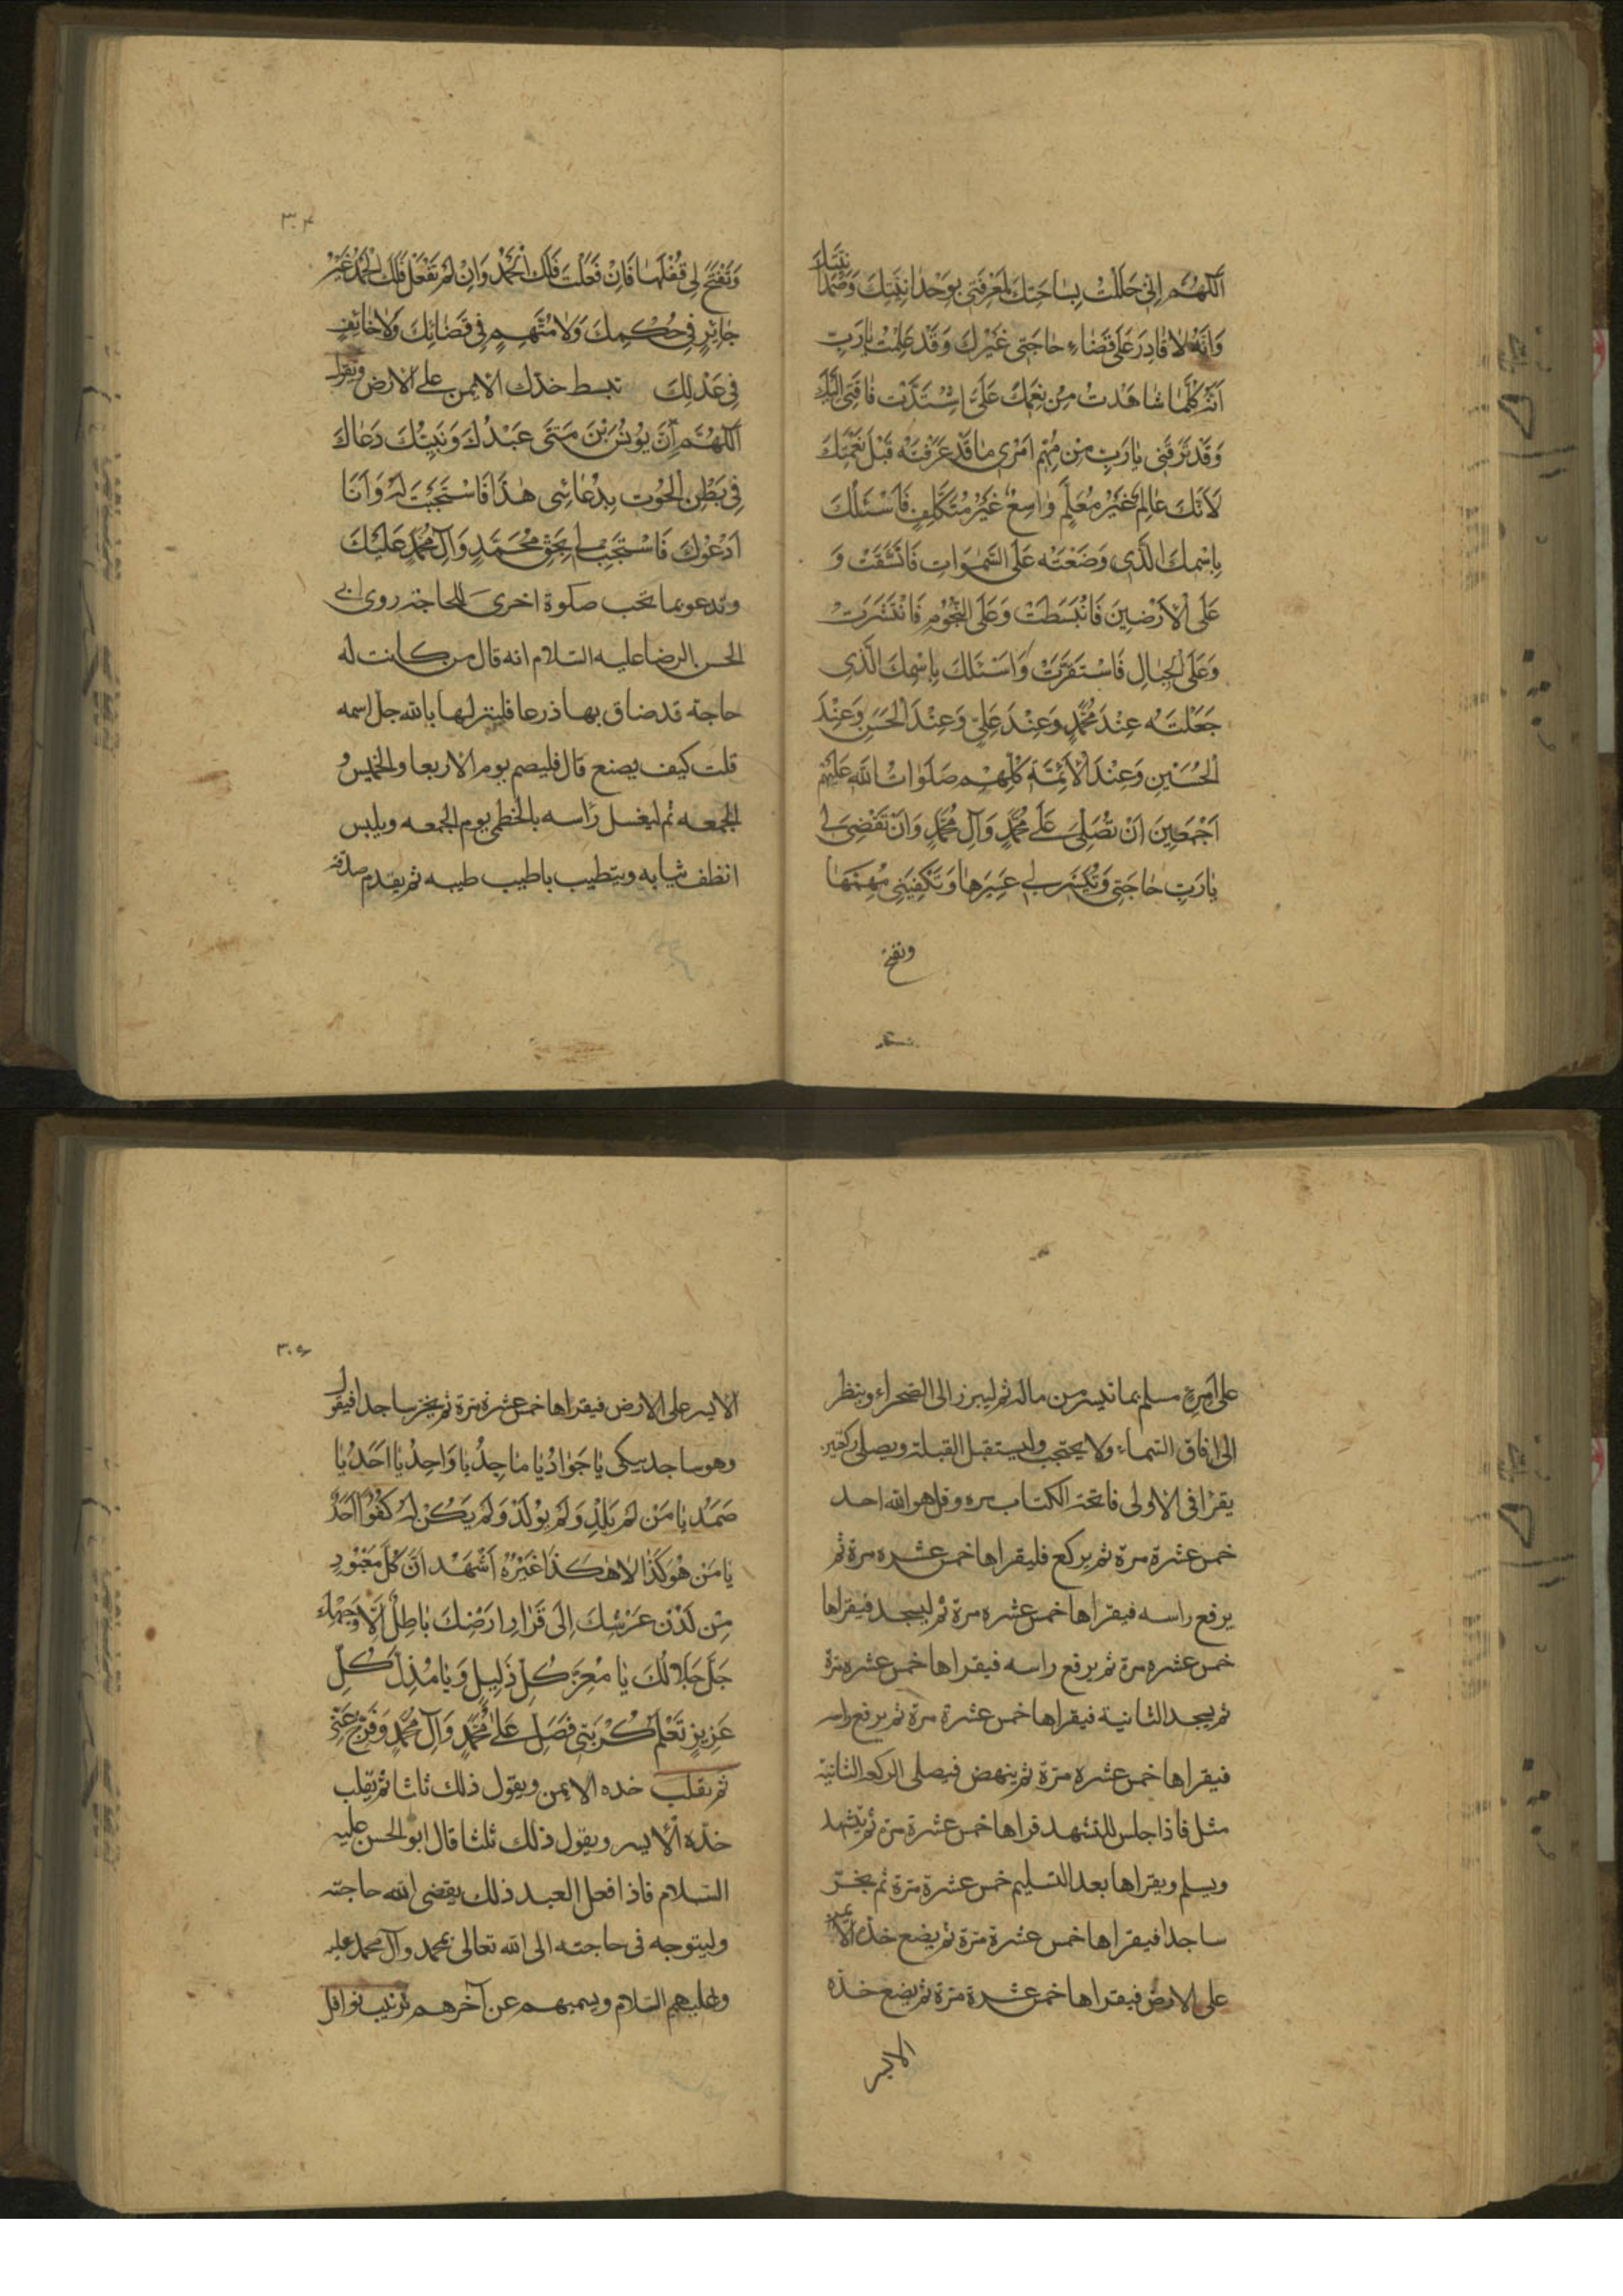 اَللّهُمَّ اِنّی حَلَلْتُ بِسٰاحَتِكَ لِمَعْرِفَتی بِوَحْدٰانِیَّتِكَ وَصَمَدٰانِیَّتِكَ
وَاَنَّهُ لاٰ قٰادِرَ عَلٰی قَضٰاءِ حٰاجَتی غَیْرُكَ وَقَدْ عَلِمْتَ یٰارَبِّ
اَنَّهُ كُلَّمٰا شٰاهَدْتُ مِنْ نِعَمِكَ عَلَیَّ اشْتَدَّتْ فٰاقَتی اِلَیْكَ
وَقَدْ طَرَقَنی یٰارَبِّ مِنْ مُهِمِّ اَمْری مٰا قَدْ عَرَفْتَهُ قَبْلَ
لِاَنَّكَ عٰالِمٌ غَیْرُ مُعَلَّمٍ وٰاسِعٌ غَیْرُ مُتَكَلِّفٍ فَاَسْئَلُكَ
بِاسْمِكَ الَّذی وَضَعْتَهُ عَلَی السَّمٰوَاتِ فَانْشَقَّتْ وَ
عَلَی الْاَرَضِینَ فَانْبَسَطَتْ وَعَلَی النُّجُومِ فَانْتَشَرَتْ
وَعَلَی الْجِبٰالِ فَاسْتَقَرَّتْ وَاَسْئَلُكَ بِاسْمِكَ الَّذی
جَعَلْتَهُ عِنْدَ مُحَمَّدٍ وَعِنْدَ عَلِیٍّ وَعِنْدَ الْحَسَنِ وَعِنْدَ
الْحُسَیْنِ وَعِنْدَ الْاَئِمَّةِ كُلِّهِمْ صَلَوٰاتُ اللهِ عَلَیْهِمْ
اَجْمَعِینَ اَنْ تُصَلِّیَ عَلٰی مُحَمَّدٍ وَآلِ مُحَمَّدٍ وَاَنْ تَقْضِیَ لی
یٰارَبِّ حٰاجَتی وَتُیَسِّرَ لی عَسِیرَهٰا وَتَكْفِیَنی مُهِمَّهٰا
وتفتح
٣٠٤
وَتَفْتَحَ لی قُفْلَهٰا فَاِنْ فَعَلْتَ فَلَكَ الْحَمْدُ وَاِنْ لَمْ تَفْعَلْ فَلَكَ الْحَمْدُ غَیْرَ
جٰائِرٍ فی حُكْمِكَ وَلاٰ مُتَّهَمٍ فی قَضٰائِكَ وَلاٰ خٰائِفٍ
فی عَدْلِكَ تبسط خدّك الایمن علی الارض وتقرا
اَللّهُمَّ اِنَّ یُونُسَ بْنَ مَتّٰی عَبْدُكَ وَنَبِیُّكَ دَعٰاكَ
فی بَطْنِ الْحُوتِ بِدُعٰائی هٰذٰا فَاسْتَجَبْتَ لَهُ وَاَنَا
اَدْعُوكَ فَاسْتَجِبْ لی بِحَقِّ مُحَمَّدٍ وَآلِ مُحَمَّدٍ عَلَیْكَ
وتدعو بما تحب صلوة اخری للحاجة روی ابی
الحسن الرضا علیه السّلام انه قال من كانت له
حاجة قد ضاق بها ذرعا فلینزلها بالله جل اسمه
قلت كیف یصنع قال فلیصم یوم الاربعا والخمیس و
الجمعه ثم لیغسل رأسه بالخطمی یوم الجمعه ویلبس
انظف ثیابه ویتطیب باطیب طیبه ثم یقدم صدقة
علی امرء مسلم بما تیسر من ماله ثم لیبرز الی الصحراء وینظر
الی افاق السّماء ولا یحتجب ولیستقبل القبلة ویصلی ركعتین
یقرا فی الاولی فاتحة الكتاب مره وقل هو الله احد
خمس عشرة مرة ثم یركع فلیقراها خمس عشره مرة ثم
یرفع راسه فیقراها خمس عشره مرة ثم لیسجد فیقراها
خمس عشره مرة ثم یرفع راسه فیقراها خمس عشره مرّة
ثم یسجد الثانیة فیقراها خمس عشرة مرة ثم یرفع راسه
فیقراها خمس عشرة مرّة ثم ینهض فیصلی الركعة الثانیة
مثل فاذا جلس للتشهد قراها خمس عشرة مرّة ثم یتشهد
ویسلم ویقراها بعد التسلیم خمس عشرة مرّة ثم یخرّ
ساجدا فیقراها خمس عشرة مرّة ثم یضع خدّه الایمن
علی الارض فیقراها خمس عشرة مرّة ثم یضع خدّه
الایسر
٣٠٥
الایسر علی الارض فیقراها خمس عشرة مرّة ثم یخر ساجدا فیقول
وهو ساجد یبكی یٰا جَوٰادُ یٰا مٰاجِدُ یٰا وٰاحِدُ یٰا اَحَدُ یٰا
صَمَدُ یٰا مَنْ لَمْ یَلِدْ وَلَمْ یُولَدْ وَلَمْ یَكُنْ لَهُ كُفُوًا اَحَدٌ
یٰا مَنْ هُوَ كَذٰا لاٰ هٰكَذٰا غَیْرُهُ اَشْهَدُ اَنَّ كُلَّ مَعْبُودٍ
مِنْ لَدُنْ عَرْشِكَ اِلٰی قَرٰارِ اَرْضِكَ بٰاطِلٌ اِلّاٰ وَجْهَكَ
جَلَّ جَلاٰلُكَ یٰا مُعِزَّ كُلِّ ذَلِیلٍ وَیٰا مُذِلَّ كُلِّ
عَزِیزٍ تَعْلَمُ كُرْبَتی فَصَلِّ عَلٰی مُحَمَّدٍ وَآلِ مُحَمَّدٍ وَفَرِّجْ عَنّی
ثم یقلب خده الایمن ویقول ذلك ثلثا ثم یقلب
خدّه الایسر ویقول ذلك ثلثا قال ابو الحسن علیه
السّلام فاذا فعل العبد ذلك یقضی الله حاجته
ولیتوجه فی حاجته الی الله تعالی بمحمد وآل محمد علیه
وعلیهم السّلام ویسمیهم عن آخرهم ترتیب نوافل